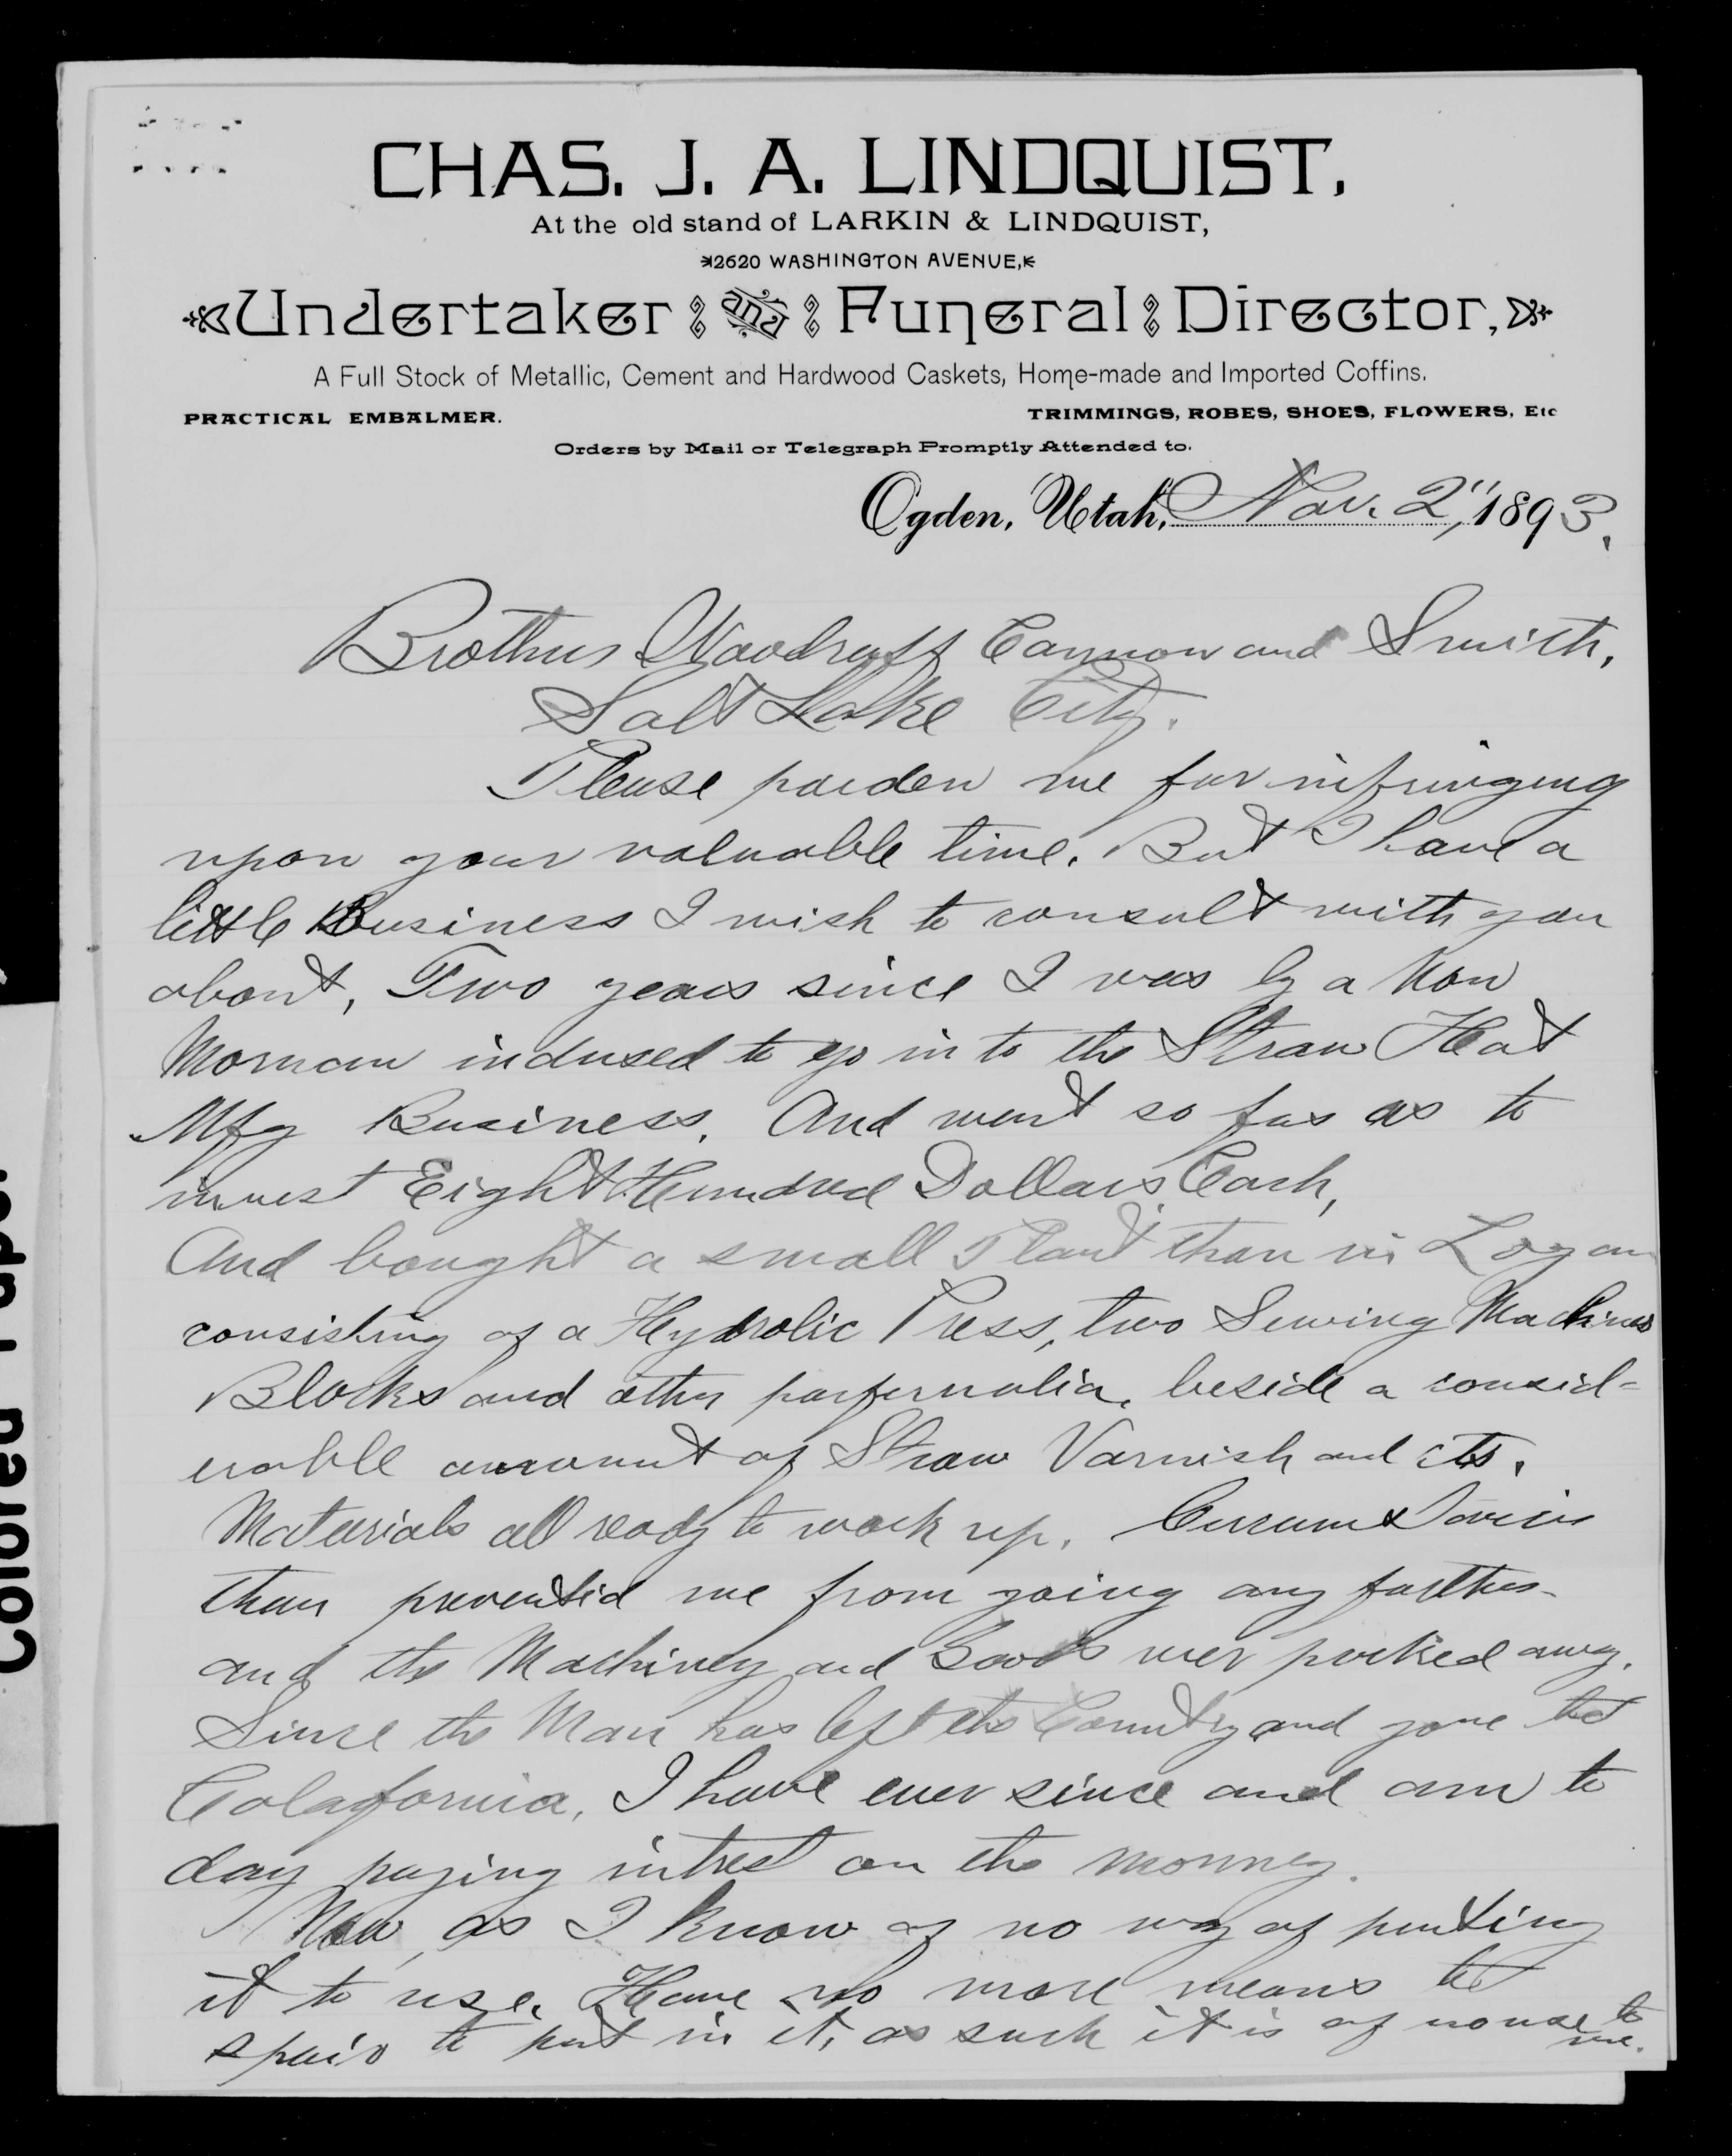 CHAS. J. A. LINDQUIST,
At the old stand of LARKIN & LINDQUIST,
2620 WASHINGTON AVENUE,
Undertaker and Funeral Director,
A Full Stock of Metallic, Cement and Hardwood Caskets, Home-made and Imported Coffins.
PRACTICAL EMBALMER. TRIMMINGS, ROBES, SHOES, FLOWERS, Etc
Orders by Mail or Telegraph Promptly Attended to.
Ogden, Utah, Nov. 2", 1893.
Brothers Woodruff Cannon and Smith,
Salt Lake City.
Please parden me for infringing
upon your valuable time. But I have a
little Business I wish to consult with you
about, Two years since I was by a Non
Morman indused to go in to the Straw Hat
Mfg Business. And went so far as to
invest Eight Hundred Dollars Cash,
And bought a small Plant than in Logan
consisting of a Hydrolic Press, two Sewing Machines
Blocks and other parfernalia. beside a consid-
erable amount of Straw Varnish and cts.
Materials all ready to work up.
than prevented me from going any further
and the Machinery and Goods wer packed away.
Since the Man has left the Country and gone to
Colafornia, I have ever since and am to
day paying intrest on the monney.
Now as I know of no way of putting
it to use. Have no more means to
spair to put in it, as such it is of no use to
me.
Colored Paper